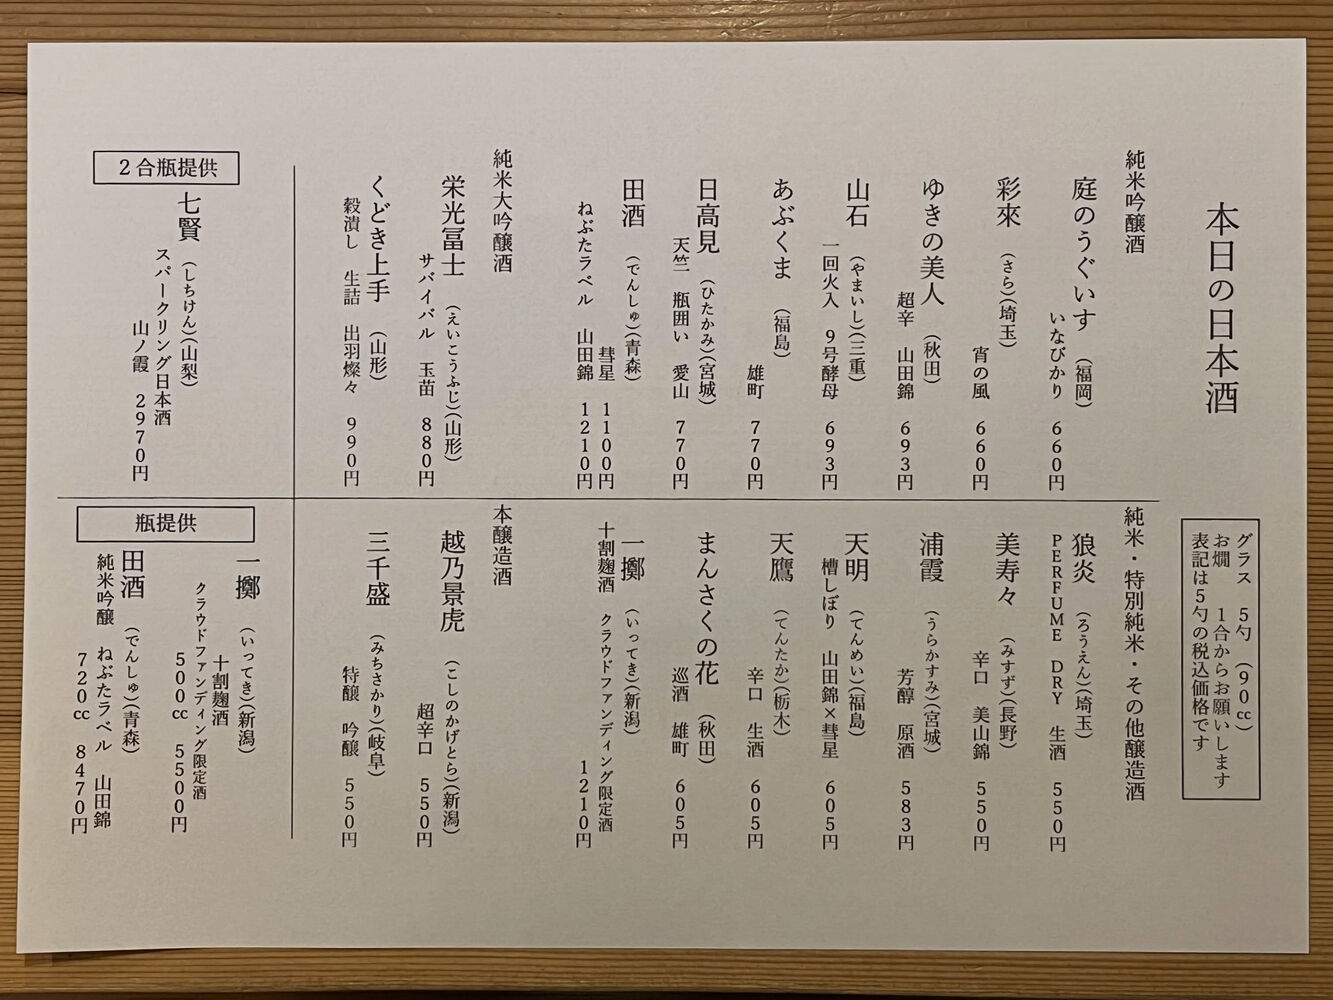 本日の日本酒
グラス 5勺 (90cc)
お燗 1合からお願いします
表記は5勺の税込価格です
純米吟醸酒
庭のうぐいす (福岡)
いなびかり 660円
彩來 (さら)(埼玉)
宵の風 660円
ゆきの美人 (秋田)
超辛 山田錦 693円
山石 (やまいし)(三重)
一回火入 9号酵母 693円
あぶくま (福島)
雄町 770円
日高見 (ひたかみ)(宮城)
天竺 瓶囲い 愛山 770円
田酒 (でんしゅ)(青森)
彗星 1100円
ねぶたラベル 山田錦 1210円
純米大吟醸酒
栄光冨士 (えいこうふじ)(山形)
サバイバル 玉苗 880円
くどき上手 (山形)
穀潰し 生詰 出羽燦々 990円
純米・特別純米・その他醸造酒
狼炎 (ろうえん)(埼玉)
PERFUME DRY 生酒 550円
美寿々 (みすず)(長野)
辛口 美山錦 550円
浦霞 (うらかすみ)(宮城)
芳醇 原酒 583円
天明 (てんめい)(福島)
槽しぼり 山田錦×彗星 605円
天鷹 (てんたか)(栃木)
辛口 生酒 605円
まんさくの花 (秋田)
巡酒 雄町 605円
一擲 (いってき)(新潟)
十割麹酒 クラウドファンディング限定酒
1210円
本醸造酒
越乃景虎 (こしのかげとら)(新潟)
超辛口 550円
三千盛 (みちさかり)(岐阜)
特醸 吟醸 550円
2合瓶提供
七賢 (しちけん)(山梨)
スパークリング日本酒
山ノ霞 2970円
瓶提供
一擲 (いってき)(新潟)
十割麹酒
クラウドファンディング限定酒
500cc 5500円
田酒 (でんしゅ)(青森)
純米吟醸 ねぶたラベル 山田錦
720cc 8470円